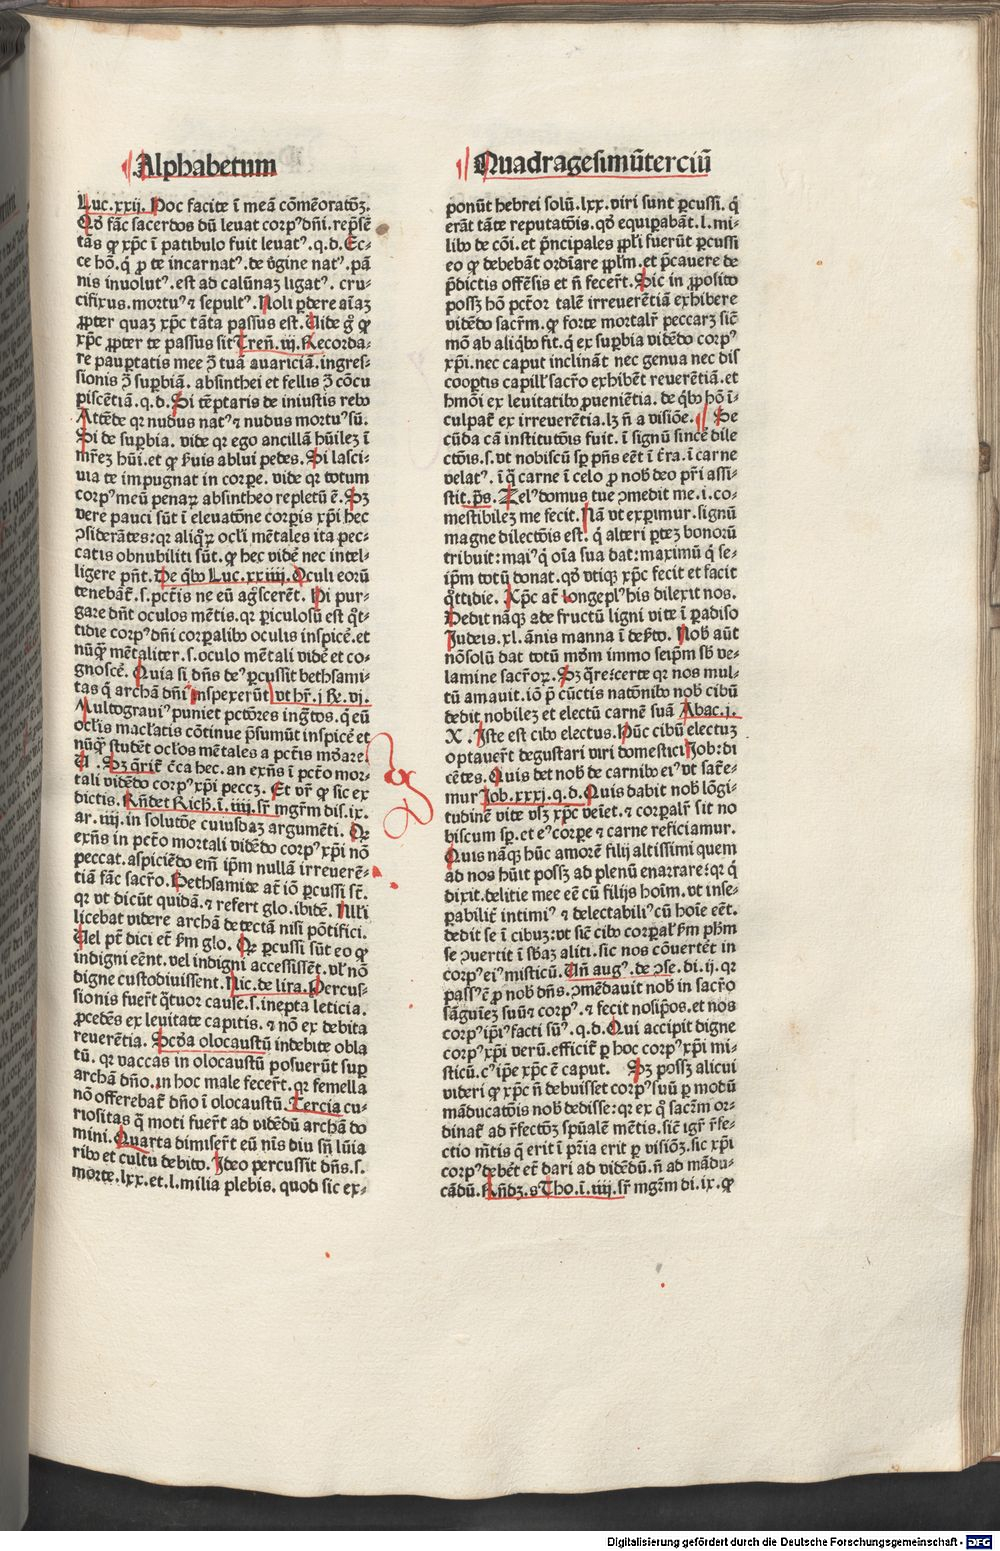 Alphabetum
Quadragesimūterciū
Luc.xxij. Hoc facite ī meā cōmēoratōꝫ.
Qđ fāc sacerdos dū levat corpꝰ dn̄i. rep̄sē
tās ꝙ xp̄c ī patibulo fuit levatꝰ.q.d. Ec⸗
ce hō.q̄ ꝓ te incarnatꝰ.de v̄gine natꝰ.pā
nis involutꝰ.est ad calūnaꝫ ligatꝰ. cru⸗
cifixus.mortuꝰ ⁊ sepultꝰ. Noli ꝑdere aīaꝫ
ꝓpter quaꝫ xp̄c tāta passus est. Uide gͦ ꝙ
xp̄c ꝓpter te passus sit Tren̄.iij. Recorda⸗
re paupertatis mee ꝯ̄ tuā avariciā.ingres⸗
sionis ꝯ̄ supbiā. absinthei et fellis ꝯ̄ cōcu
piscētiā.q.d. Si tēptaris de iniustis rebꝰ
Attēde qꝛ nudus natꝰ ⁊ nudus mortuꝰ sū.
Si de supbia. vide qꝛ ego ancillā hūileꝫ ī
mr̄eꝫ hūi.et ꝙ ẜuis ablui pedes. Si lasci⸗
uia te impugnat in corpe. vide qꝛ totum
corpꝰ meū penaꝝ absintheo repletū ē. Sꝫ
vere pauci sūt ī elevatōne corpis xp̄i hec
ꝯsiderātes:qꝛ aliqͦꝝ ocl̓i mētales ita pec⸗
catis obnubiliti sūt.ꝙ hec vidē nec intel⸗
ligere pn̄t. De qͥbꝰ Luc.xxiiij. Oculi eorū
tenebāt̄.s.pctīs ne eū ag̓scerēt. Hi pur⸗
gare dn̄t oculos mētis.qꝛ piculosū est qͦt⸗
tidie corpꝰ dn̄i corpalibꝰ oculis inspicē.et
nūqͣꝫ mētaliter.s.oculo mētali vidē et co⸗
gnoscē. Quia si dn̄s deꝰ pcussit bethsami⸗
tas q̄ archā dn̄i inspexerūt vt hr̄.j Re.vj.
Multograuiꝰ puniet pctōres ingͣtos.q̄ eū
ocl̓is mac̄latis cōtinue p̄sumūt inspicē et
nūqͣꝫ studēt ocl̓os mētales a pctīs mōare.
V . Sꝫ q̄rit̄ c̄ca hec. an exn̄s ī pctō mor⸗
tali vidēdo corpꝰ xp̄i pecceꝫ. Et vr̄ ꝙ sic ex
dictis. Rn̄det Rich̄.ī.iiij.sr̄ mgr̄m dis.ix.
ar.iiij.in solutōe cuiusdaꝫ argumēti. Qꝛ
exn̄s in pctō mortali vidēdo corpꝰ xp̄i nō
peccat.aspiciēdo em̄ ip̄m nullā irreuerē⸗
tiā fāc sacrō. Bethsamite at̄ iō pcussi st̄.
qꝛ vt dicūt quidā.⁊ refert glo.ibidē. Nlli
licebat videre archā detectā nisi pōtifici.
Uel pt̄ dici et̄ ẜm glo. Qꝛ pcussi sūt eo ꝙ
indigni eēnt.vel indigni accessissēt.vl̓ nō
digne custodiuissent. Nic.de lira. Percus⸗
sionis fuer̄t qͣtuor cause.s.inepta leticia.
ꝓcedēs ex levitate capitis.⁊ nō ex debita
reuerētia. Scd̄a olocaustū indebite obla
tū. qꝛ vaccas in olocaustū posuerūt sup
archā dn̄o.in hoc male fecer̄t.qꝛ femella
nō offerebat̄ dn̄o ī olocaustū. Tercia cu⸗
riositas q̄ moti fuer̄t ad vidēdū archā do
mini. Quarta dimiser̄t eū nīs diu sn̄ lūia
ribꝰ et cultu debito. Ideo percussit dn̄s.s.
morte.lxx.et.l.milia plebis. quod sic ex⸗
ponūt hebrei solū.lxx.viri sunt pcussi. q̄
erāt tāte reputatōis. qđ equipabāt.l.mi⸗
libꝰ de cōi.et p̄ncipales ppl̓i fuerūt pcussi
eo ꝙ debebāt ordīare ppl̓m.et p̄cauere de
p̄dictis offēsis et n̄ fecer̄t. Sic in ꝓposito
possꝫ hō pctōr talē irreverētiā exhibere
vidēdo sacrm̄.ꝙ forte mortalr̄ peccarꝫ sic̄
mō ab aliqͥbꝰ fit.q̄ ex supbia vidēdo corpꝰ
xp̄i.nec caput inclināt nec genua nec dis
cooptis capill̓ sacrō exhibēt reuerētiā.et
hmōi ex leuitatibꝰ ꝓueniētia. de qͥbꝰ hō ī⸗
culpat̄ ex irreuerētia.lꝫ n̄ a visiōe. Se
cūda cā institutōis fuit.ī signū sincē dile
ctōis.s.vt nobiscū sp pn̄s eēt ī tr̄ra.ī carne
velatꝰ. ī q̄ carne ī celo ꝓ nob̄ deo pr̄i assi⸗
stit.ps̄. Zelꝰ domus tue ꝯmedit me.i.co⸗
mestibileꝫ me fecit. Nā vt expimur.signū
magne dilectōis est. q̄ alteri ptez bonorū
tribuit:maiꝰ q̄ oīa sua dat:maximū q̄ se⸗
ip̄m totū donat.qđ vtiqꝫ xp̄c fecit et facit
qͦttidie. Xp̄c at̄ longe plꝰ his dilexit nos.
Dedit nāqꝫ ade fructū ligni vite ī padiso
Judeis.xl.ānis manna ī deẜto. Nob̄ aūt
nōsolū dat totū mōm immo seipm̄ sb̄ ve⸗
lamine sacrōꝝ. Sꝫ q̄re:certe qꝛ nos mul⸗
tū amauit.iō p̄ cūctis natōnibꝰ nob̄ cibū
dedit nobileꝫ et electū carnē suā Abac.j.
X . Iste est cibꝰ electus. Hūc cibū electuꝫ
optauer̄t degustari viri domestici Job:di
cētes. Quis det nob̄ de carnibꝰ eiꝰ vt sat̄e⸗
mur Job.xxxj.q.d. Quis dabit nob̄ lōgi⸗
tudinē vite vsqꝫ xp̄c veīet.⁊ corpal̓r sit no
biscum sp.et eꝰ corpe ⁊ carne reficiamur.
Quis nāqꝫ hūc amorē filij altissimi quem
ad nos hūit possꝫ ad plenū enarrare:qꝛ q̄
dixit.delitie mee eē cū filijs hoīm.vt inse⸗
pabilit̄ intimiꝰ ⁊ delectabiliꝰ cū hoīe eēt.
dedit se ī cibuꝫ:vt sic̄ cibꝰ corpal̓ ẜm ph̄m
se ꝯuertit ī sb̄aꝫ aliti.sic nos cōuertēt in
corpꝰ eiꝰ misticū. Un̄ augꝰ.de ꝯse.di.ij.qꝛ
passꝰ ē ꝓ nob̄ dn̄s. ꝯmēdauit nob̄ in sacrō
sāguīeꝫ suū ⁊ corpꝰ.⁊ fecit nosip̄os.et nos
corpꝰ ip̄iꝰ facti sūꝰ.q.d. Qui accipit digne
corpꝰ xp̄i verū.efficit̄ p hoc corpꝰ xp̄i mi⸗
sticū.cꝰ ip̄e xp̄c ē caput. Sꝫ possꝫ alicui
videri ꝙ xp̄c n̄ debuisset corpꝰ suū p modū
māducatōis nob̄ dedisse:qꝛ ex qͦ sacrm̄ or⸗
dinat̄ ad r̄fectōꝫ spūalē mētis.sic̄ igr̄ r̄fe⸗
ctio m̄tis q̄ erit ī pr̄ia erit p visiōꝫ.sic xp̄i
corpꝰ debēt et̄ dari ad vidēdū.n̄ ad mādu⸗
cādū. Rn̄dꝫ.s Tho.ī.iiij.sr̄ mgr̄m di.ix.ꝙ
Digitalisierung gefördert durch die Deutsche Forschungsgemeinschaft - DFG